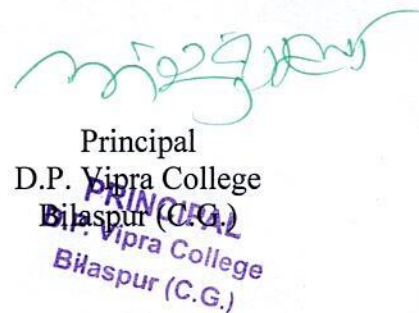 Principal
D.P. Vipra College
Bilaspur (C.G.)
PRINCIPAL
D.P. Vipra College
Bilaspur (C.G.)